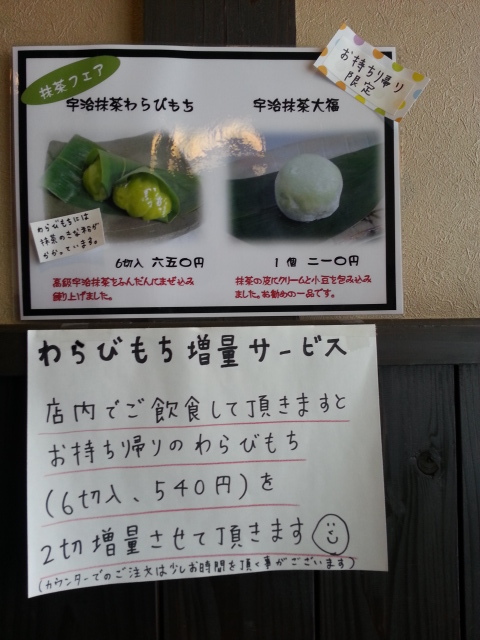 お持ち帰り
限定
抹茶フェア
宇治抹茶わらびもち
宇治抹茶大福
わらびもちには
抹茶のきな粉が
かかっています。
6切入 六五〇円
1個 二一〇円
高級宇治抹茶をふんだんにまぜ込み
練り上げました。
抹茶の皮にクリームと小豆を包み込み
ました。お勧めの一品です。
わらびもち増量サービス
店内でご飲食して頂きますと
お持ち帰りのわらびもち
(6切入、540円)を
2切増量させて頂きます
(カウンターでのご注文は少しお時間を頂く事がございます)